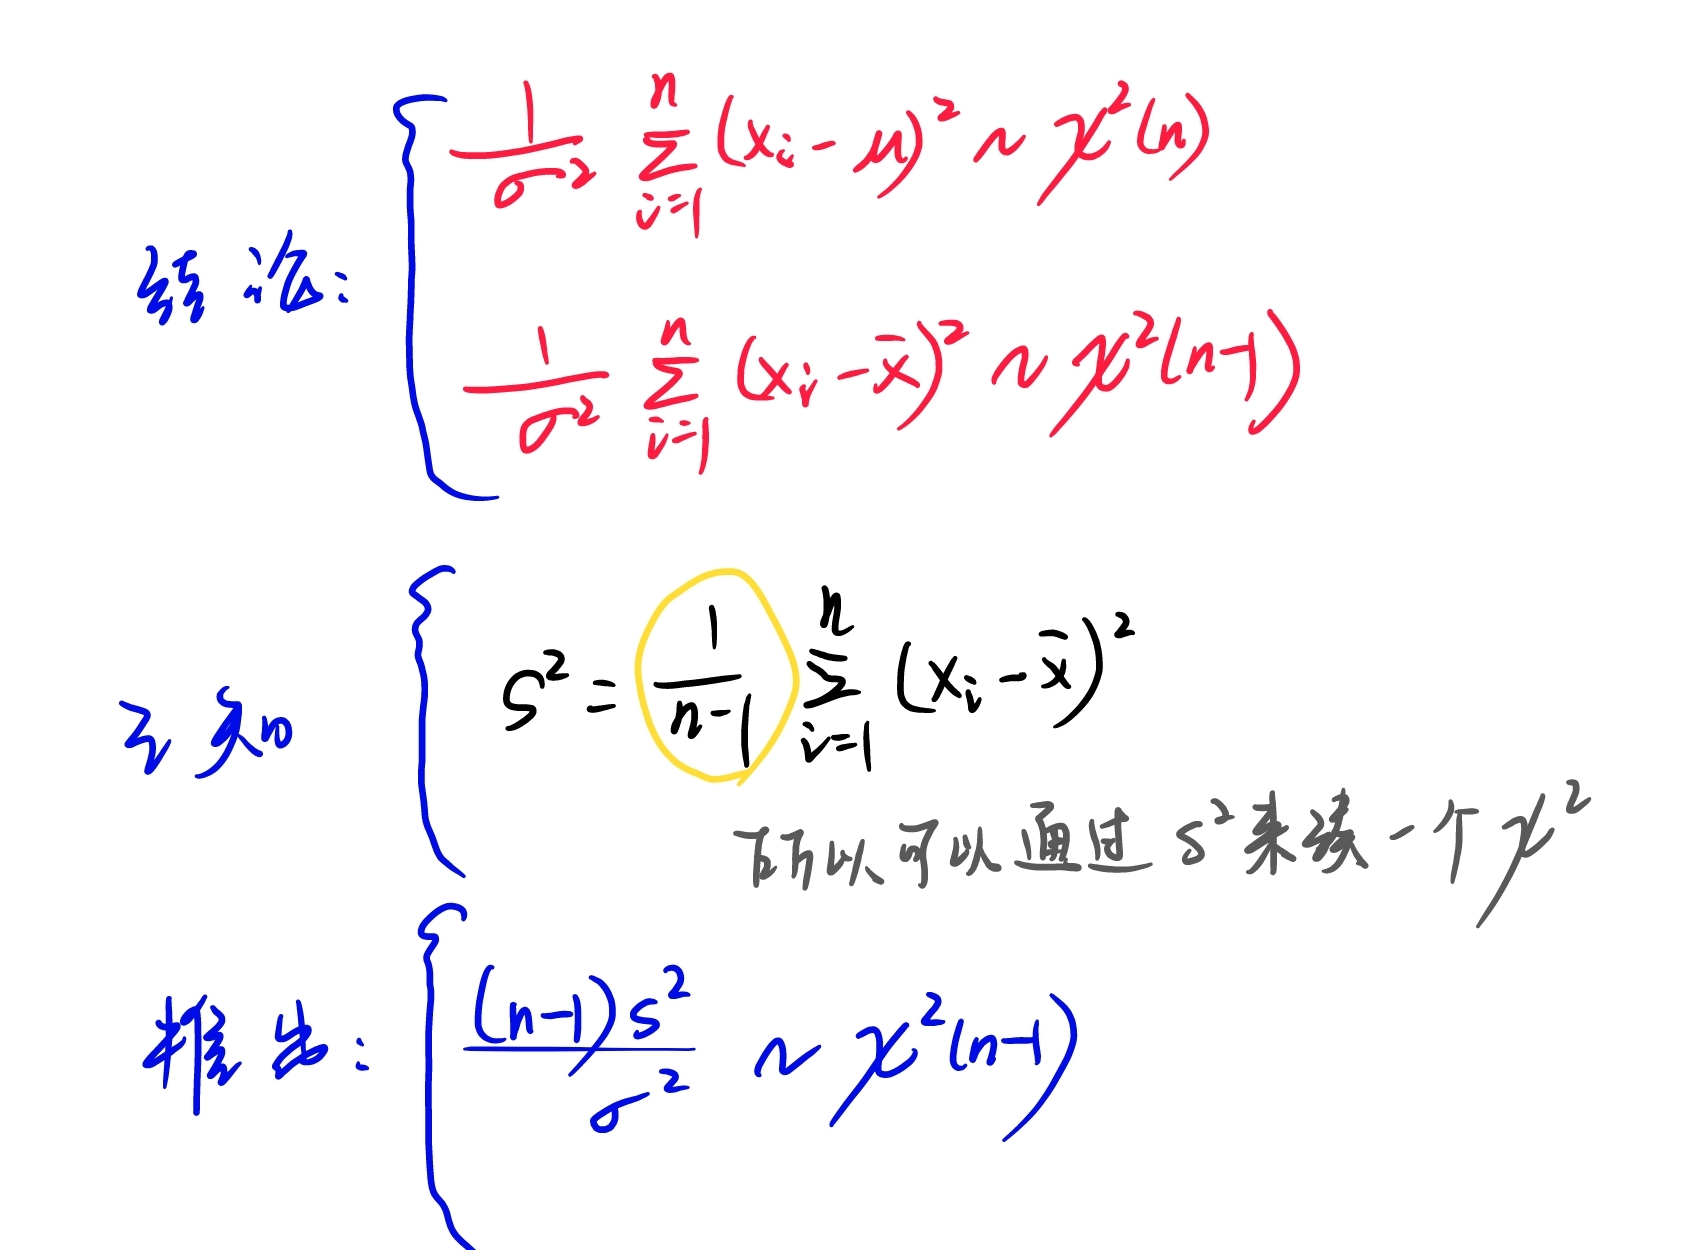 结论:
1/σ² Σ_{i=1}^{n} (xᵢ - μ)² ~ χ²(n)
1/σ² Σ_{i=1}^{n} (xᵢ - x̄)² ~ χ²(n-1)
已知
S² = 1/(n-1) Σ_{i=1}^{n} (xᵢ - x̄)²
所以可以通过 S² 来凑一个 χ²
推出:
(n-1)S²/σ² ~ χ²(n-1)